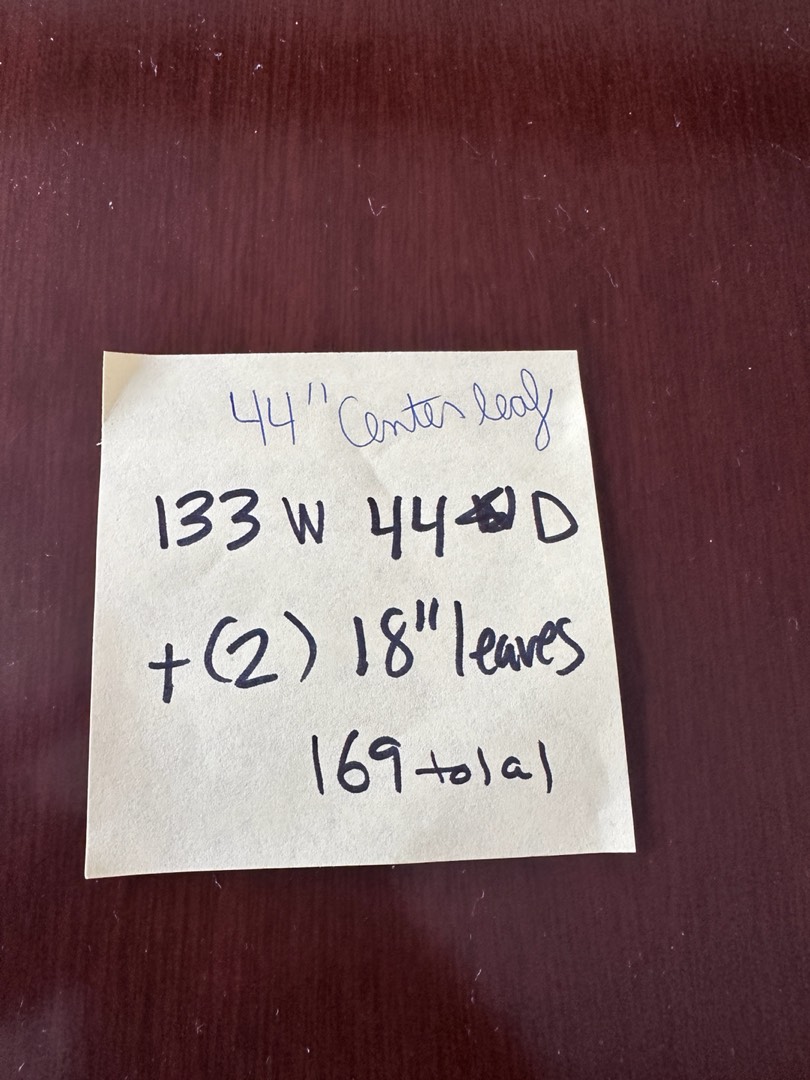 44" Center leaf
133 W 44 D
+(2) 18" leaves
169 total